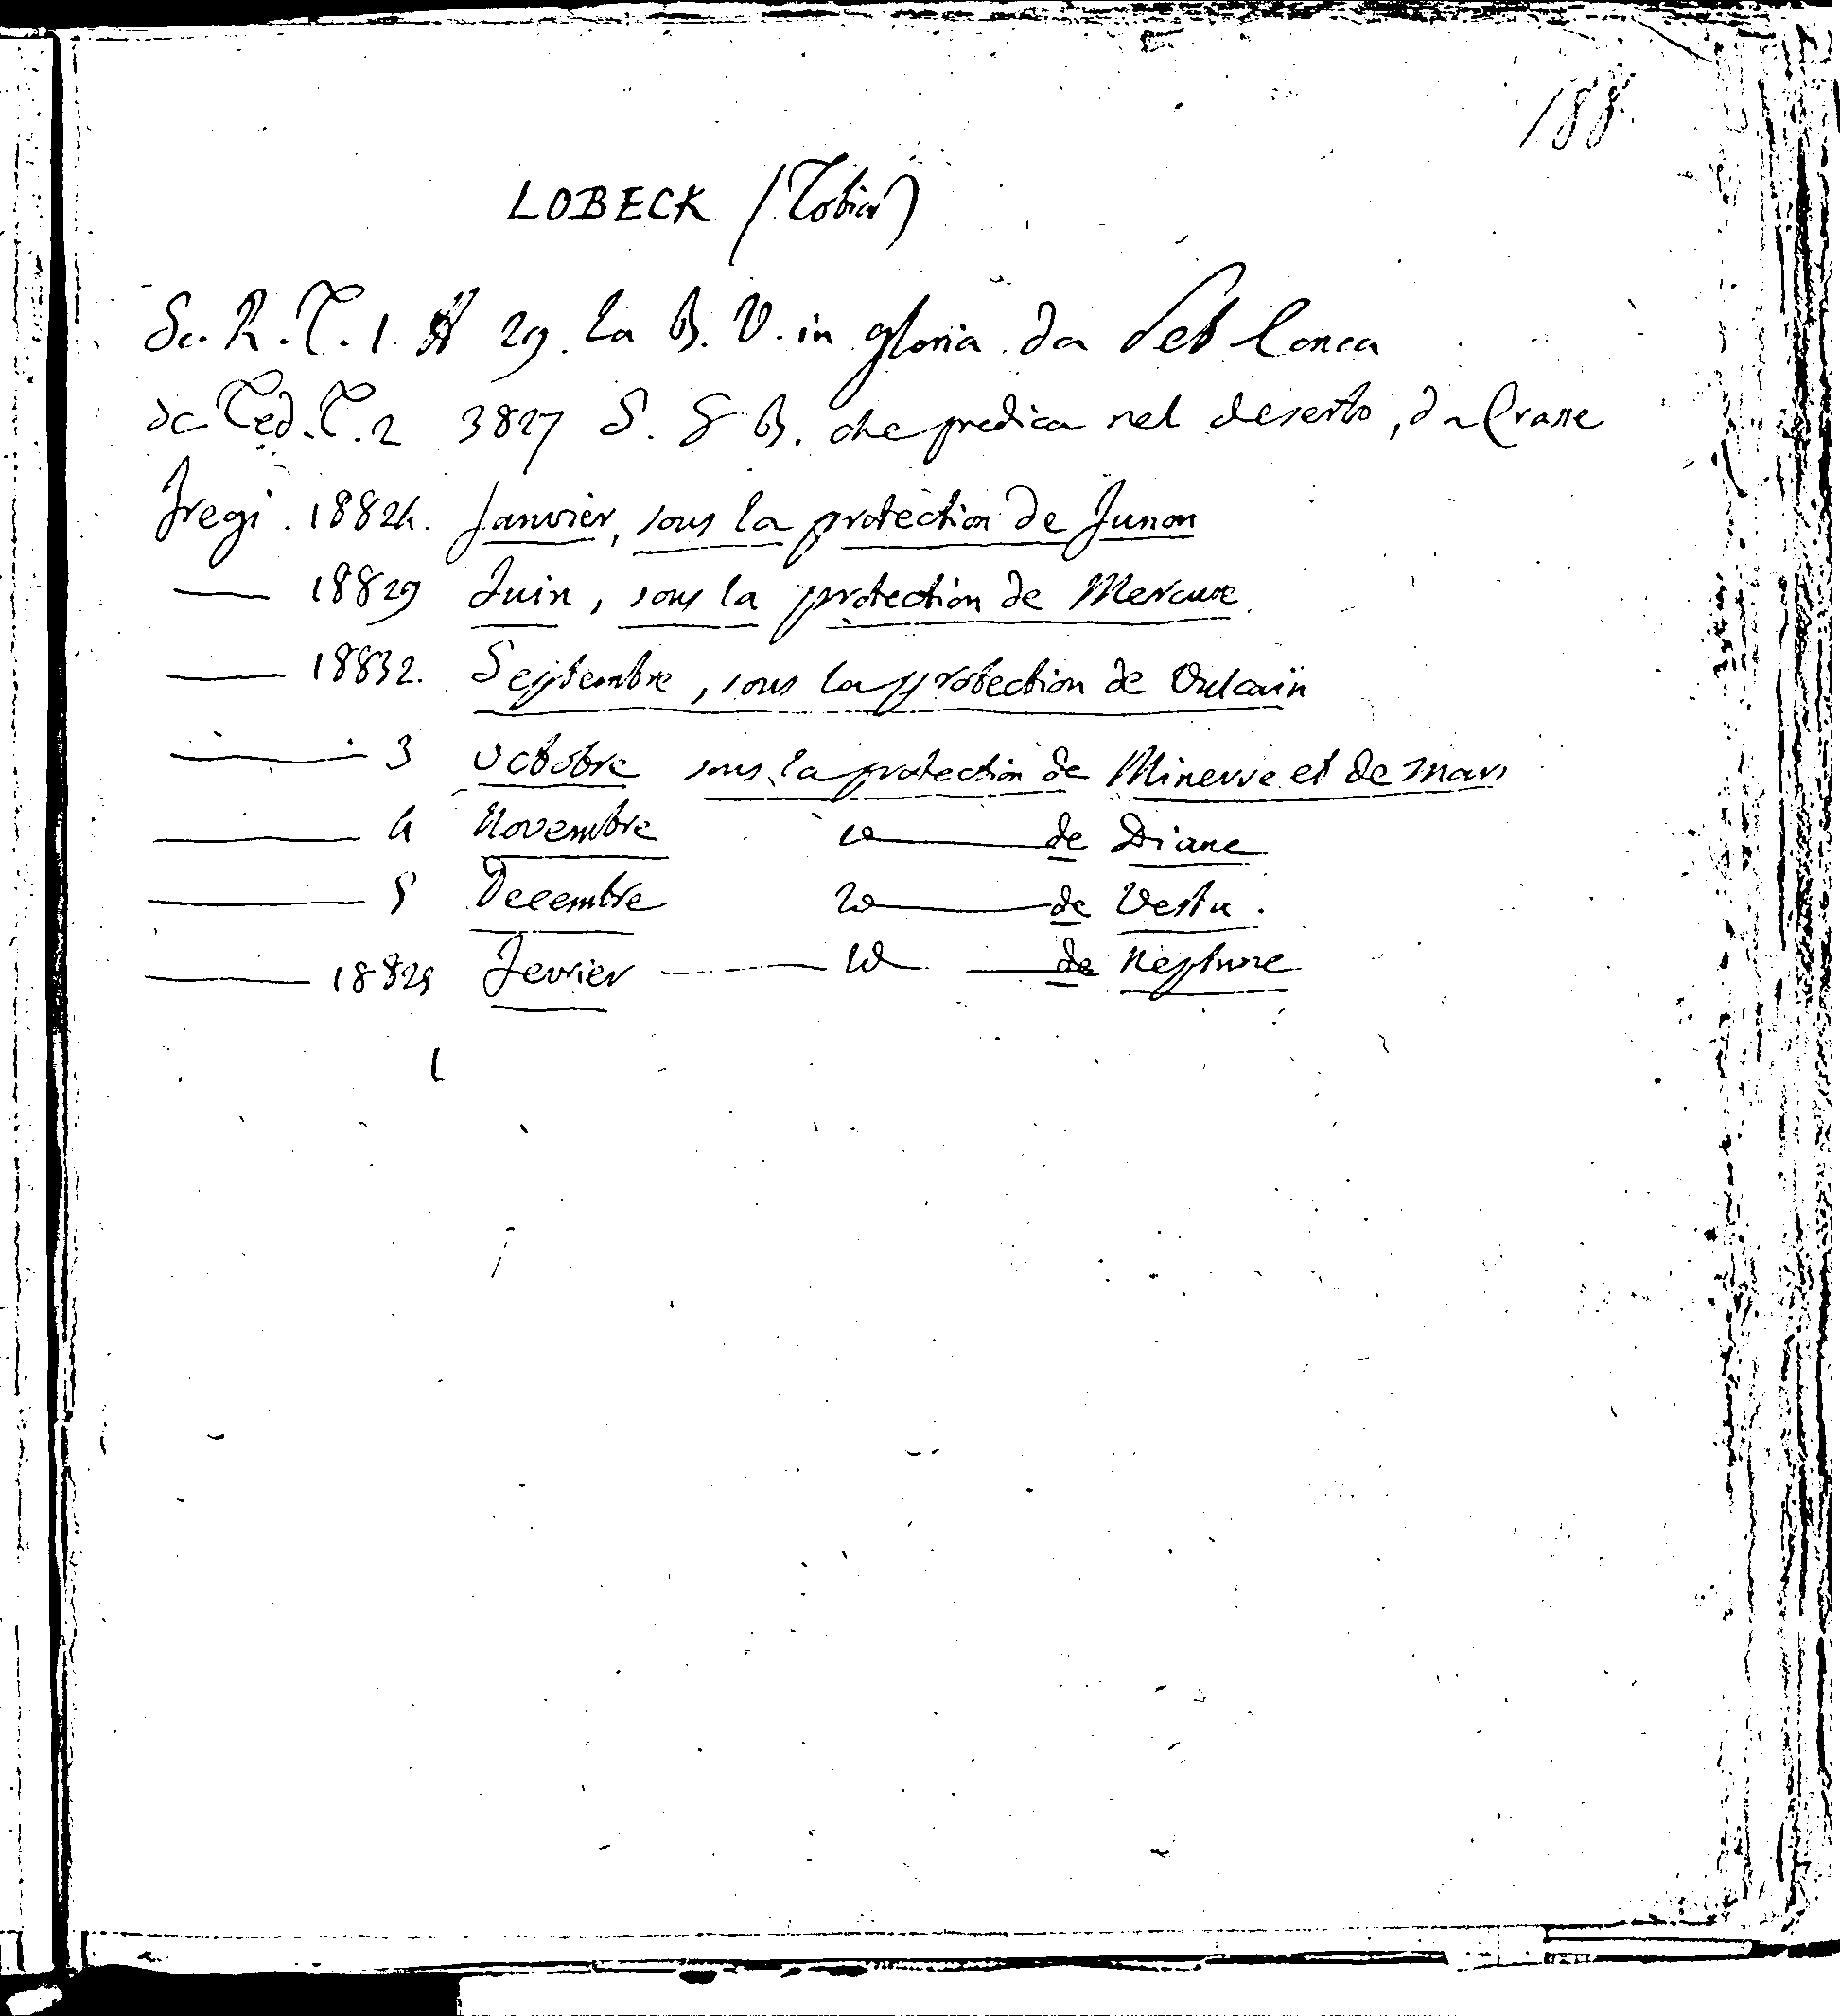 188.
LOBECK (Tobia)
Sc. R. T. 1. A 29. La B. V. in gloria. da Seb Conca
Sc Ted. T. 2 3827 S. G B. che predica nel deserto, da Crasse
Fregi. 18824. Janvier, sous la protection de Junon
— 18829 Juin, sous la protection de Mercure
— 18832. Septembre, sous la protection de Vulcain
— 3 Octobre sous la protection de Minerve et de Mars
— 4 Novembre id — de Diane
— 5 Decembre id — de Vesta.
— 18825 Fevrier — id — de Neptune